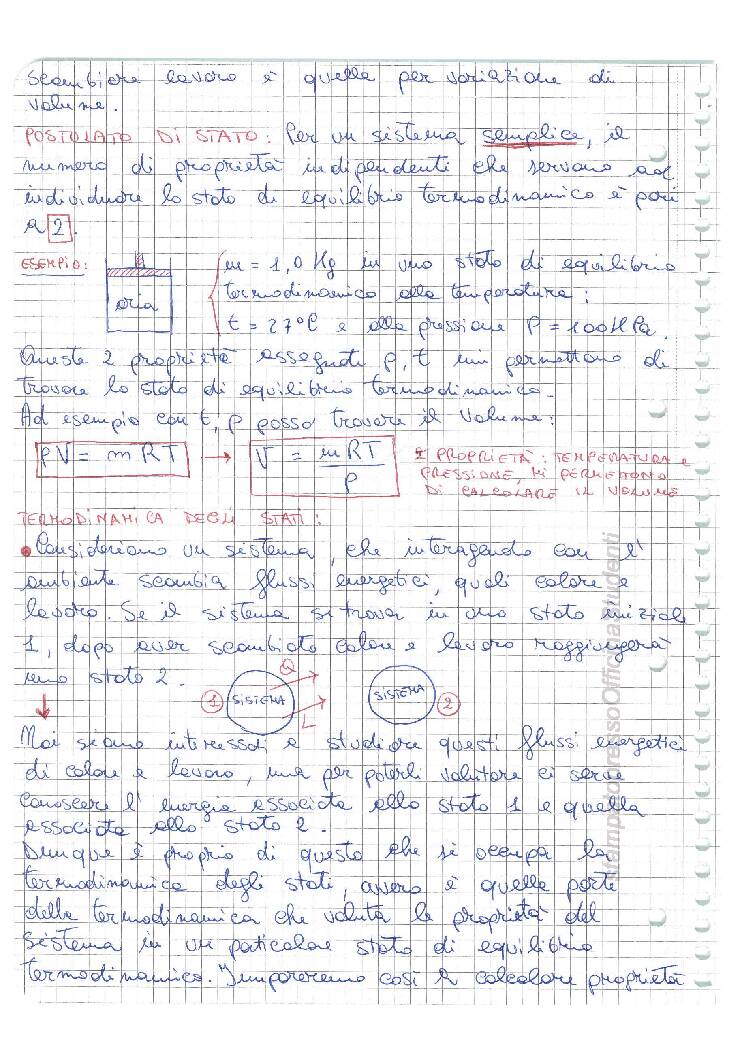 scambiare lavoro è quella per variazione di
volume.
POSTULATO DI STATO: Per un sistema semplice, il
numero di proprietà indipendenti che servono ad
individuare lo stato di equilibrio termodinamico è pari
a 2.
ESEMPIO:
aria
m = 1,0 Kg in uno stato di equilibrio
termodinamico alla temperatura:
t = 27°C e alla pressione P = 100 KPa.
Queste 2 proprietà assegnate p, t mi permettono di
trovare lo stato di equilibrio termodinamico.
Ad esempio con t, p posso trovare il volume:
pV = mRT → V = mRT / p
2 PROPRIETÀ: TEMPERATURA e
PRESSIONE, MI PERMETTONO
DI CALCOLARE IL VOLUME
TERMODINAMICA DEGLI STATI:
• Consideriamo un sistema, che interagendo con l'
ambiente scambia flussi energetici, quali calore e
lavoro. Se il sistema si trova in uno stato iniziale
1, dopo aver scambiato calore e lavoro raggiungerà
uno stato 2.
1 SISTEMA Q L SISTEMA 2
Noi siamo interessati a studiare questi flussi energetici
di calore e lavoro, ma per poterli valutare ci serve
conoscere l' energia associata allo stato 1 e quella
associata allo stato 2.
Dunque è proprio di questo che si occupa la
termodinamica degli stati, ovvero è quella parte
della termodinamica che valuta le proprietà del
sistema in un paticolare stato di equilibrio
termodinamico. Impareremo così a calcolare proprietà
StampatopressoOfficinaStudenti